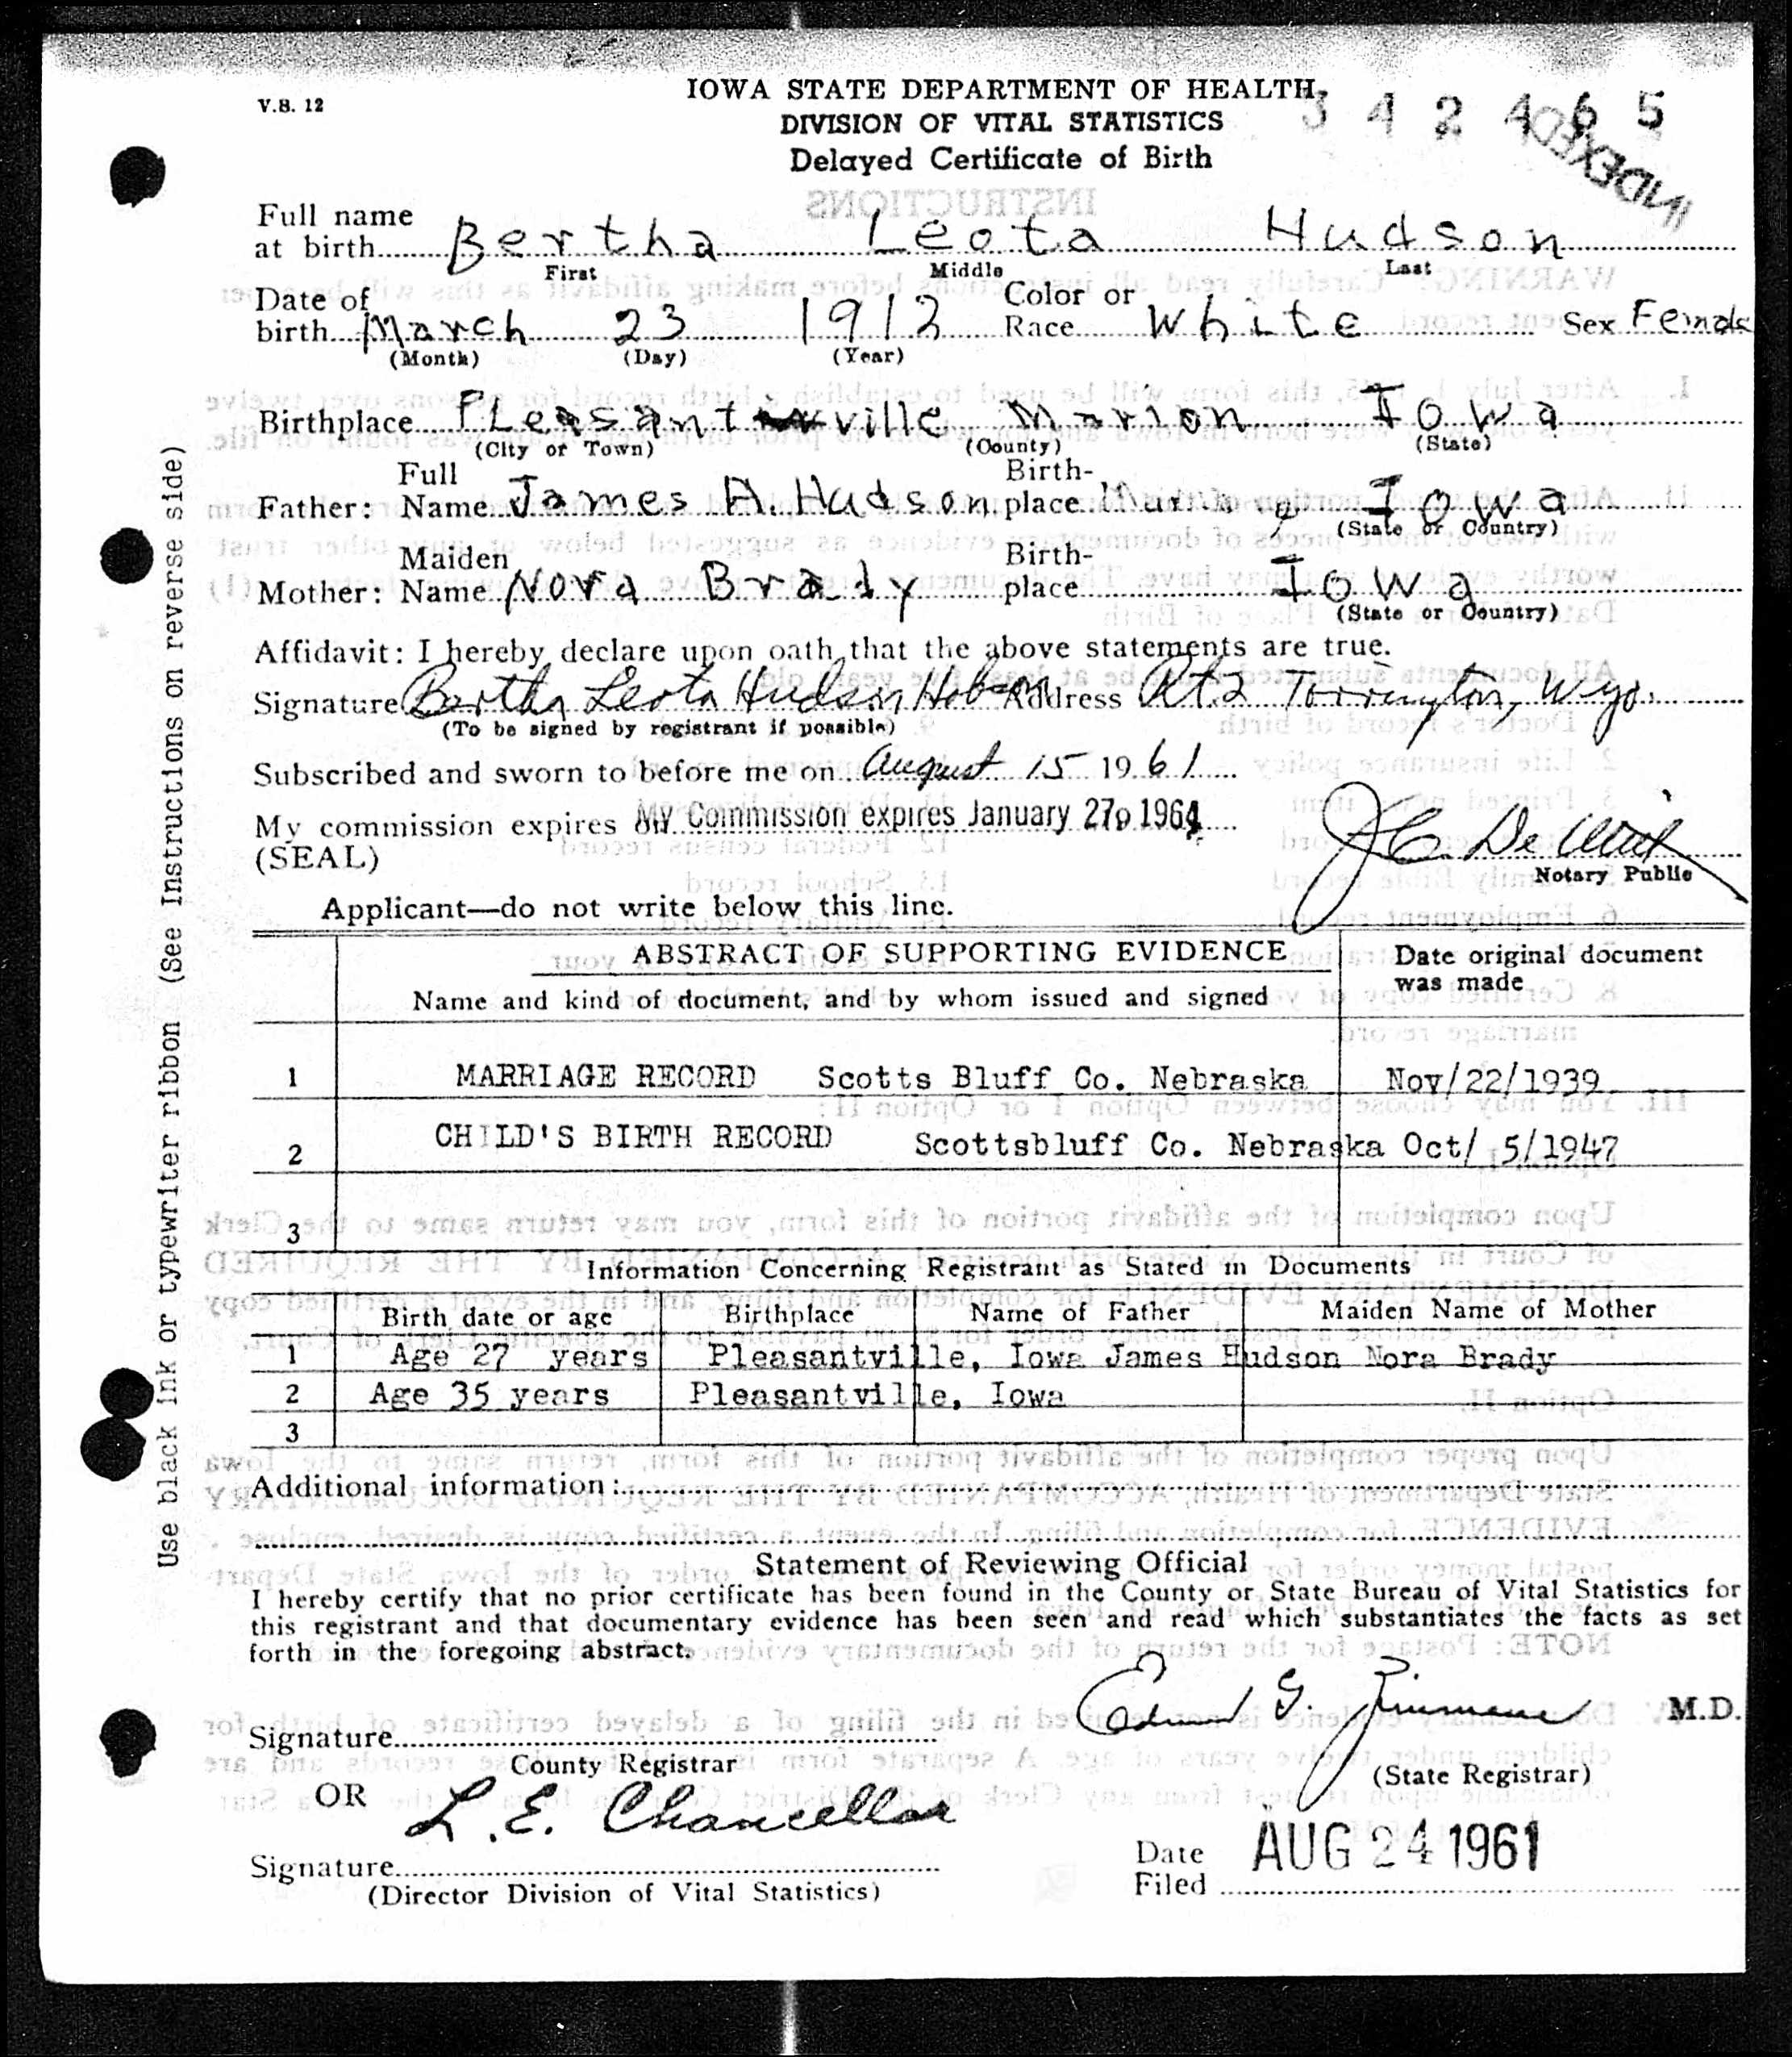 V.S. 12
IOWA STATE DEPARTMENT OF HEALTH
DIVISION OF VITAL STATISTICS
Delayed Certificate of Birth
342465
INDEXED
Full name
at birth Bertha Leota Hudson
First Middle Last
Date of
birth March 23 1912 Color or Race White Sex Female
(Month) (Day) (Year)
Birthplace Pleasantville Marion Iowa
(City or Town) (County) (State)
Father: Full Name James A. Hudson Birth-place Iowa
(State or Country)
Mother: Maiden Name Nora Brady Birth-place Iowa
(State or Country)
Affidavit: I hereby declare upon oath that the above statements are true.
Signature Bertha Leota Hudson Hobson Address Rt. 2 Torrington, Wyo.
(To be signed by registrant if possible)
Subscribed and sworn to before me on August 15 1961
My commission expires on My Commission expires January 27, 1964
(SEAL)
Notary Public
Applicant—do not write below this line.
ABSTRACT OF SUPPORTING EVIDENCE
Name and kind of document, and by whom issued and signed
Date original document
was made
1 MARRIAGE RECORD Scotts Bluff Co. Nebraska Nov/22/1939
2 CHILD'S BIRTH RECORD Scottsbluff Co. Nebraska Oct/ 5/1947
3
Information Concerning Registrant as Stated in Documents
Birth date or age Birthplace Name of Father Maiden Name of Mother
1 Age 27 years Pleasantville, Iowa James Hudson Nora Brady
2 Age 35 years Pleasantville, Iowa
3
Additional information:
Statement of Reviewing Official
I hereby certify that no prior certificate has been found in the County or State Bureau of Vital Statistics for
this registrant and that documentary evidence has been seen and read which substantiates the facts as set
forth in the foregoing abstract.
Signature
County Registrar
Edmund G. Zimmerer M.D.
(State Registrar)
OR
L. E. Chancellor
Signature
(Director Division of Vital Statistics)
Date
Filed AUG 24 1961
Use black ink or typewriter ribbon (See Instructions on reverse side)